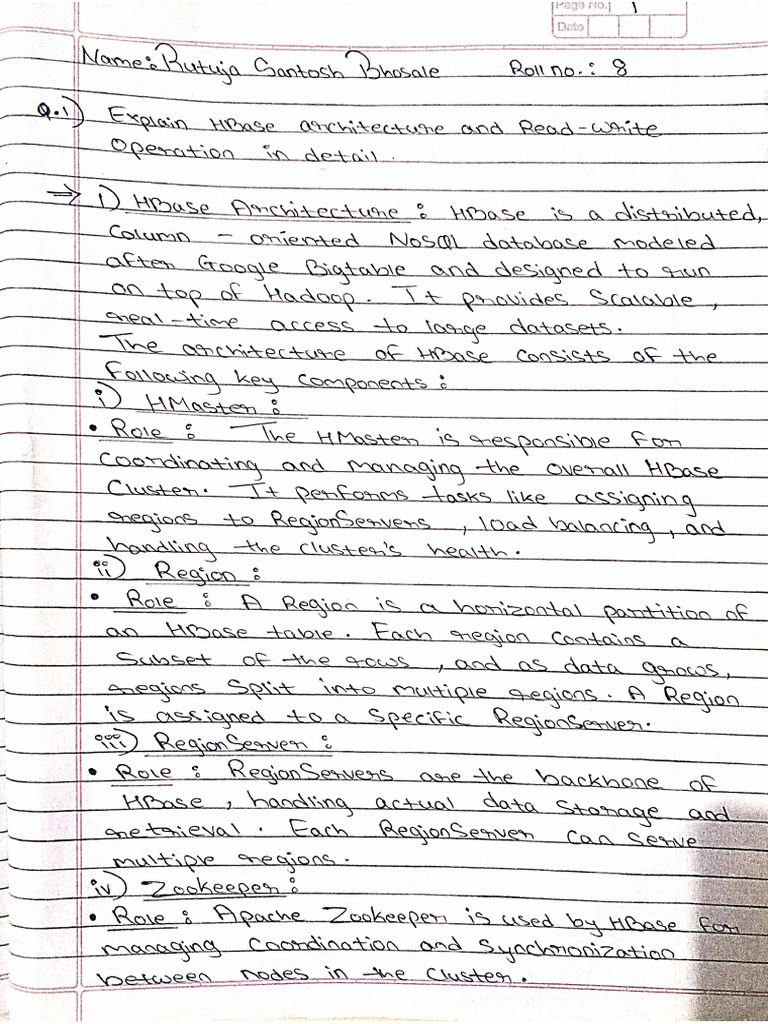 Page No. 1
Date
Name: Rutuja Santosh Bhosale Roll no.: 8
Q.1) Explain HBase architecture and Read-write
Operation in detail.
⇒ 1) HBase Architecture : HBase is a distributed,
Column - oriented NoSQL database modeled
after Google Bigtable and designed to run
on top of Hadoop. It provides Scalable,
real-time access to large datasets.
The architecture of HBase consists of the
following key components :
i) HMaster :
• Role : The HMaster is responsible for
Coordinating and managing the overall HBase
Cluster. It performs tasks like assigning
regions to RegionServers, load balancing, and
handling the cluster's health.
ii) Region :
• Role : A Region is a horizontal partition of
an HBase table. Each region contains a
Subset of the rows, and as data grows,
regions Split into multiple regions. A Region
is assigned to a Specific RegionServer.
iii) RegionServer :
• Role : RegionServers are the backbone of
HBase, handling actual data Storage and
retrieval. Each RegionServer can serve
multiple regions.
iv) Zookeeper :
• Role : Apache Zookeeper is used by HBase for
managing Coordination and Synchronization
between nodes in the Cluster.